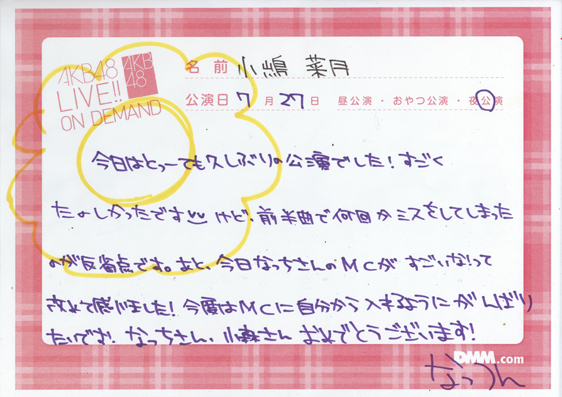 AKB48
LIVE!!
ON DEMAND
AKB
48
名前 小嶋 菜月
公演日 7月27日 昼公演・おやつ公演・夜公演
今日はとってーも久しぶりの公演でした！すごく
たのしかったです けど、前半曲で何回かミスをしてしまった
のが反省点です。あと、今日なっちさんのMCがすごいな！って
改めて感じました！今度はMCに自分から入れるようにがんばり
たいです。なっちさん、小森さんおめでとうございます！
DMM.com
なっつん